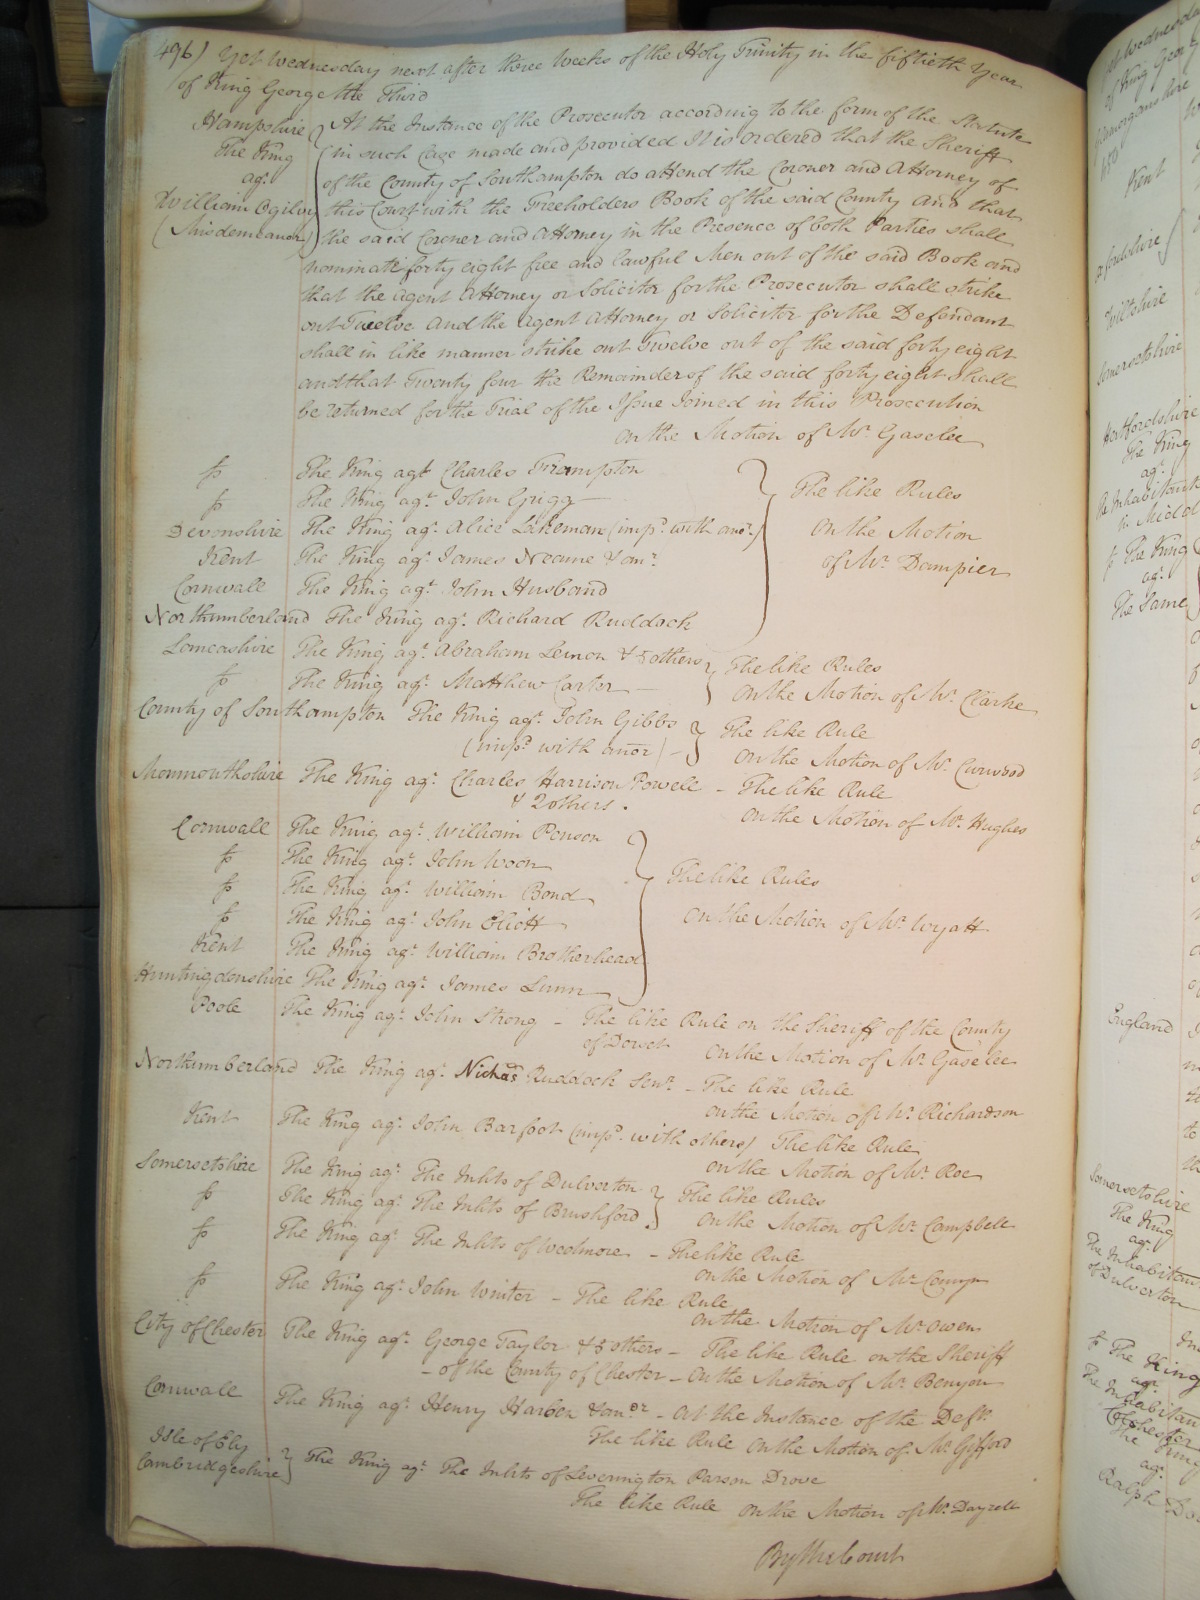 496) Yet Wednesday next after three Weeks of the Holy Trinity in the fiftieth Year
of King George the Third
Hampshire
The King
agt
William Ogilvy
(Misdemeanor)
At the Instance of the Prosecutor according to the form of the Statute
in such Case made and provided It is ordered that the Sheriff
of the County of Southampton do attend the Coroner and Attorney of
this Court with the Freeholders Book of the said County and that
the said Coroner and Attorney in the Presence of both Parties shall
nominate forty eight free and lawful Men out of the said Book and
that the agent Attorney or Solicitor for the Prosecutor shall strike
out Twelve and the agent Attorney or Solicitor for the Defendant
shall in like manner strike out Twelve out of the said forty eight
and that Twenty four the Remainder of the said forty eight shall
be returned for the Trial of the Issue Joined in this Prosecution
on the Motion of Mr. Gaselee
fs The King agt Charles Frampton
fs The King agt John Grigg
Devonshire The King agt Alice Lakeman (impd. with anor.)
Kent The King agt James Neame & anr.
Cornwall The King agt John Husband
Northumberland The King agt Richard Ruddock
The like Rules
on the Motion
of Mr. Dampier
Lancashire The King agt Abraham Lemon & 5 others
fs The King agt Matthew Carter
The like Rules
on the Motion of Mr. Clarke
County of Southampton The King agt John Gibbs
(impd. with anor)
The like Rule
on the Motion of Mr. Curwood
Monmouthshire The King agt Charles Harrison Powell - The like Rule
& 2 others.
on the Motion of Mr. Hughes
Cornwall The King agt William Ponson
fs The King agt John Woon
fs The King agt William Bond
fs The King agt John Eliott
Kent The King agt William Brotherhead
Huntingdonshire The King agt James Lunn
The like Rules
on the Motion of Mr. Wyatt
Poole The King agt John Strong - The like Rule on the Sheriff of the County
of Dorset on the Motion of Mr. Gaselee
Northumberland The King agt Nichas Ruddock Senr. - The like Rule
on the Motion of Mr. Richardson
Kent The King agt John Barfoot (impd. with others) The like Rule
on the Motion of Mr. Roe
Somersetshire The King agt The Inhts of Dulverton
fs The King agt The Inhts of Brushford
The like Rules
on the Motion of Mr. Campbell
fs The King agt The Inhts of Wedmore - The like Rule
on the Motion of Mr. Comyn
fs The King agt John Winter - The like Rule
on the Motion of Mr. Owen
City of Chester The King agt George Taylor & 5 others - The like Rule on the Sheriff
- of the County of Chester - on the Motion of Mr. Benyon
Cornwall The King agt Henry Harben & anor - at the Instance of the Deft.
The like Rule on the Motion of Mr. Gifford
Isle of Ely
Cambridgeshire The King agt The Inhts of Leverington Parson Drove
The like Rule on the Motion of Mr. Dayrell
By the Court
Yet Wednesday
of King Geor
Glamorganshire
Kent
Wiltshire
Somersetshire
Hertfordshire
The King
agt
The Inhabitants
fs The King
agt
The Same
England
Somersetshire
The King
agt
The Inhabitan
of Dulverton
fs The King
agt
The Inhabitan
Colchester
The King
agt
Ralph